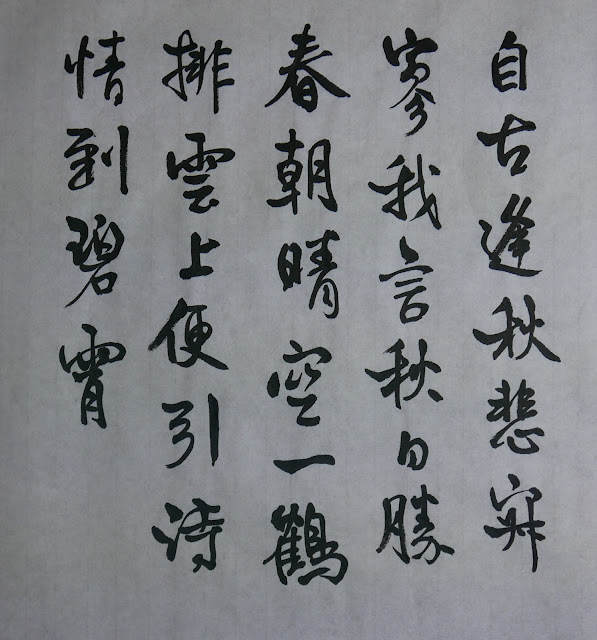 自古逢秋悲寂
寥我言秋日勝
春朝晴空一鶴
排雲上便引詩
情到碧霄